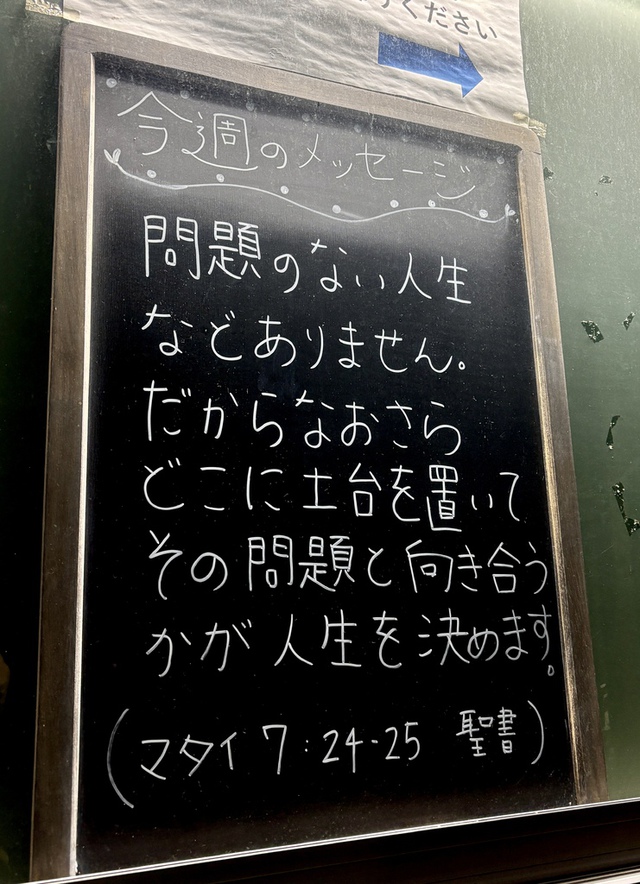 ください
今週のメッセージ
問題のない人生
などありません。
だからなおさら
どこに土台を置いて
その問題と向き合う
かが人生を決めます。
(マタイ 7:24-25 聖書)